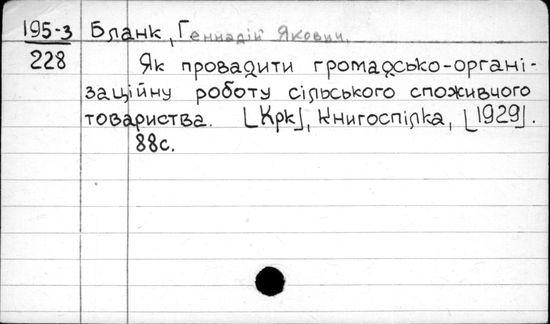 195-з Бланк, Геннадій Якович.
228 Як провадити громадсько-органі-
заційну роботу сільського споживчого
товариства. [Хрк], Книгоспілка, [1929].
88с.